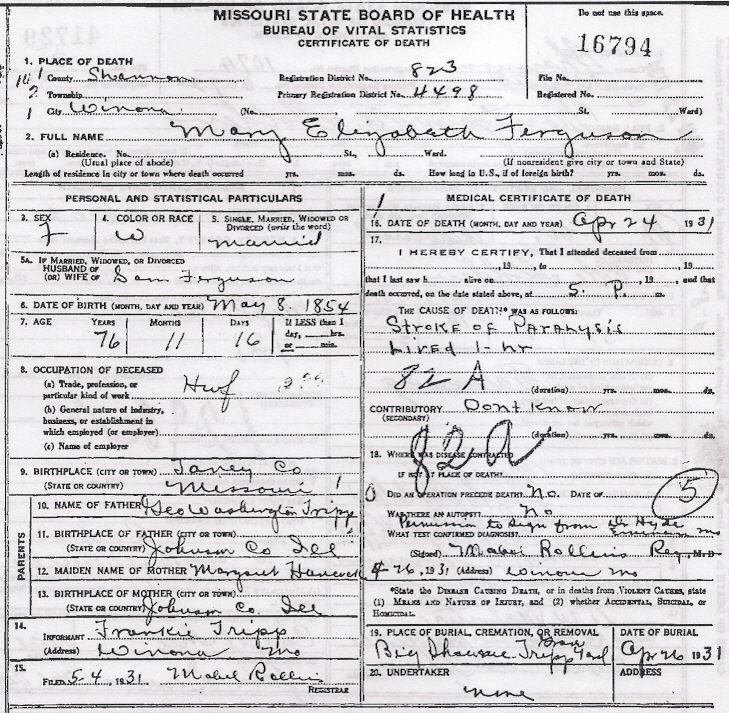 MISSOURI STATE BOARD OF HEALTH
BUREAU OF VITAL STATISTICS
CERTIFICATE OF DEATH
Do not use this space.
16794
1. PLACE OF DEATH
County Shannon Registration District No. 823 File No.
Township Primary Registration District No. 4498 Registered No.
City Winona (No. St. Ward)
2. FULL NAME Mary Elizabeth Ferguson
(a) Residence. No. St., Ward.
(Usual place of abode) (If nonresident give city or town and State)
Length of residence in city or town where death occurred yrs. mos. ds. How long in U.S., if of foreign birth? yrs. mos. ds.
PERSONAL AND STATISTICAL PARTICULARS
3. SEX 4. COLOR OR RACE 5. SINGLE, MARRIED, WIDOWED OR
DIVORCED (write the word)
F W Married
5A. IF MARRIED, WIDOWED, OR DIVORCED
HUSBAND OF
(OR) WIFE OF Sam Ferguson
6. DATE OF BIRTH (MONTH, DAY AND YEAR) May 8. 1854
7. AGE YEARS MONTHS DAYS If LESS than 1
day, hrs.
or min.
76 11 16
8. OCCUPATION OF DECEASED
(a) Trade, profession, or
particular kind of work Hwf
(b) General nature of industry,
business, or establishment in
which employed (or employer)
(c) Name of employer
9. BIRTHPLACE (CITY OR TOWN) Taney Co
(STATE OR COUNTRY) Missouri
PARENTS
10. NAME OF FATHER Geo Washington Tripp
11. BIRTHPLACE OF FATHER (CITY OR TOWN)
(STATE OR COUNTRY) Johnson Co Ill
12. MAIDEN NAME OF MOTHER Margaret Hancock
13. BIRTHPLACE OF MOTHER (CITY OR TOWN)
(STATE OR COUNTRY) Johnson Co. Ill
14.
INFORMANT Frankie Tripp
(Address) Winona Mo
15.
FILED 5-4, 1931 Mabel Rollins
REGISTRAR
MEDICAL CERTIFICATE OF DEATH
16. DATE OF DEATH (MONTH, DAY AND YEAR) Apr 24 1931
17.
I HEREBY CERTIFY, That I attended deceased from
, 19 , to , 19
that I last saw h alive on , 19 , and that
death occurred, on the date stated above, at 5. P. m.
THE CAUSE OF DEATH* WAS AS FOLLOWS:
Stroke of Paralysis
Lived 1-hr
82 A
(duration) yrs. mos. ds.
CONTRIBUTORY Dont Know
(SECONDARY)
(duration) yrs. mos. ds.
82a
18. WHERE WAS DISEASE CONTRACTED
IF NOT AT PLACE OF DEATH?
DID AN OPERATION PRECEDE DEATH? No. DATE OF
5
WAS THERE AN AUTOPSY? No
Permission to sign from Dr Hyde
WHAT TEST CONFIRMED DIAGNOSIS? Eminence Mo
(Signed) Mabel Rollins Reg, M.D
4-26, 1931 (Address) Winona Mo
*State the DISEASE CAUSING DEATH, or in deaths from VIOLENT CAUSES, state
(1) MEANS AND NATURE OF INJURY, and (2) whether ACCIDENTAL, SUICIDAL, or
HOMICIDAL.
19. PLACE OF BURIAL, CREMATION, OR REMOVAL DATE OF BURIAL
Big Shawnee Tripp Grave Yard Apr 26 1931
20. UNDERTAKER ADDRESS
None